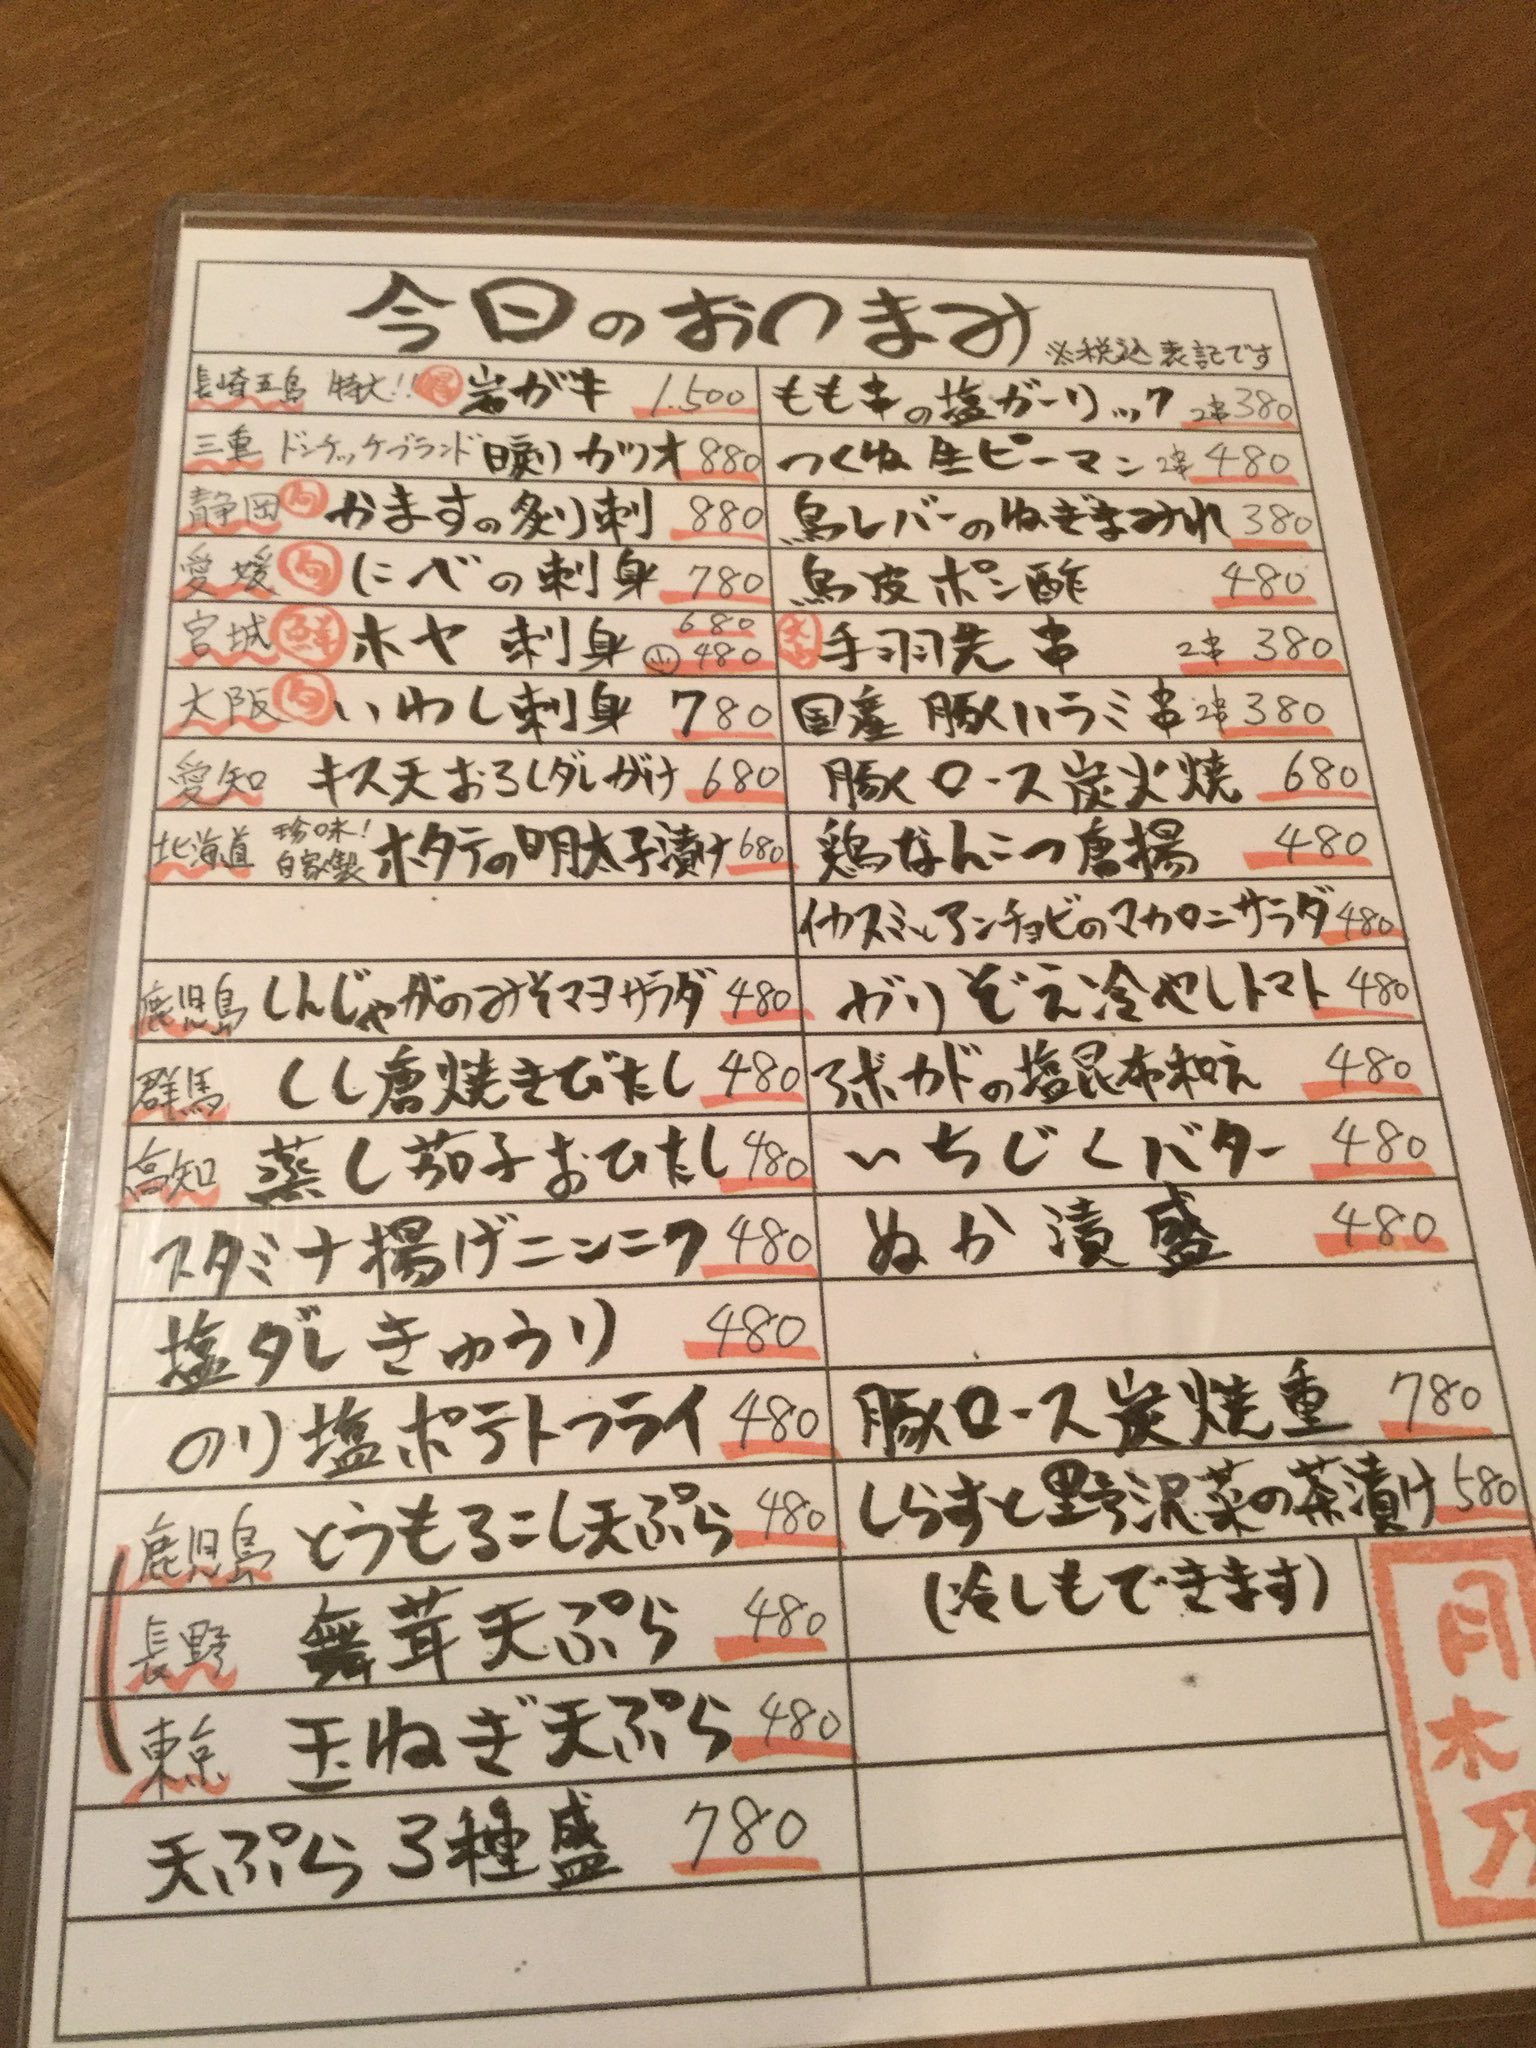 今日のおつまみ ※税込表記です
長崎五島 特大!! 岩ガキ 1.500
三重 ドンケッケブランド 日戻りカツオ 880
静岡 旬 かますの炙り刺 880
愛媛 旬 にべの刺身 780
宮城 鮮 ホヤ 刺身 680 小 480
大阪 旬 いわし刺身 780
愛知 キス天おろしダレがけ 680
北海道 珍味! 自家製 ホタテの明太子漬け 680
鹿児島 しんじゃがのみそマヨサラダ 480
群馬 しし唐焼きびたし 480
高知 蒸し茄子おひたし 480
スタミナ揚げニンニク 480
塩ダレきゅうり 480
のり塩ポテトフライ 480
鹿児島 とうもろこし天ぷら 480
長野 舞茸天ぷら 480
東京 玉ねぎ天ぷら 480
天ぷら3種盛 780
もも串の塩ガーリック 2串 380
つくね 生ピーマン 2串 480
鳥レバーのねぎまみれ 380
鳥皮ポン酢 480
手羽先串 2串 380
国産 豚ハラミ串 2串 380
豚ロース炭火焼 680
鶏なんこつ唐揚 480
イカスミとアンチョビのマカロニサラダ 480
ガリぞえ冷やしトマト 480
アボカドの塩昆布和え 480
いちじくバター 480
ぬか漬盛 480
豚ロース炭焼重 780
しらすと野沢菜の茶漬け 580
(冷しもできます)